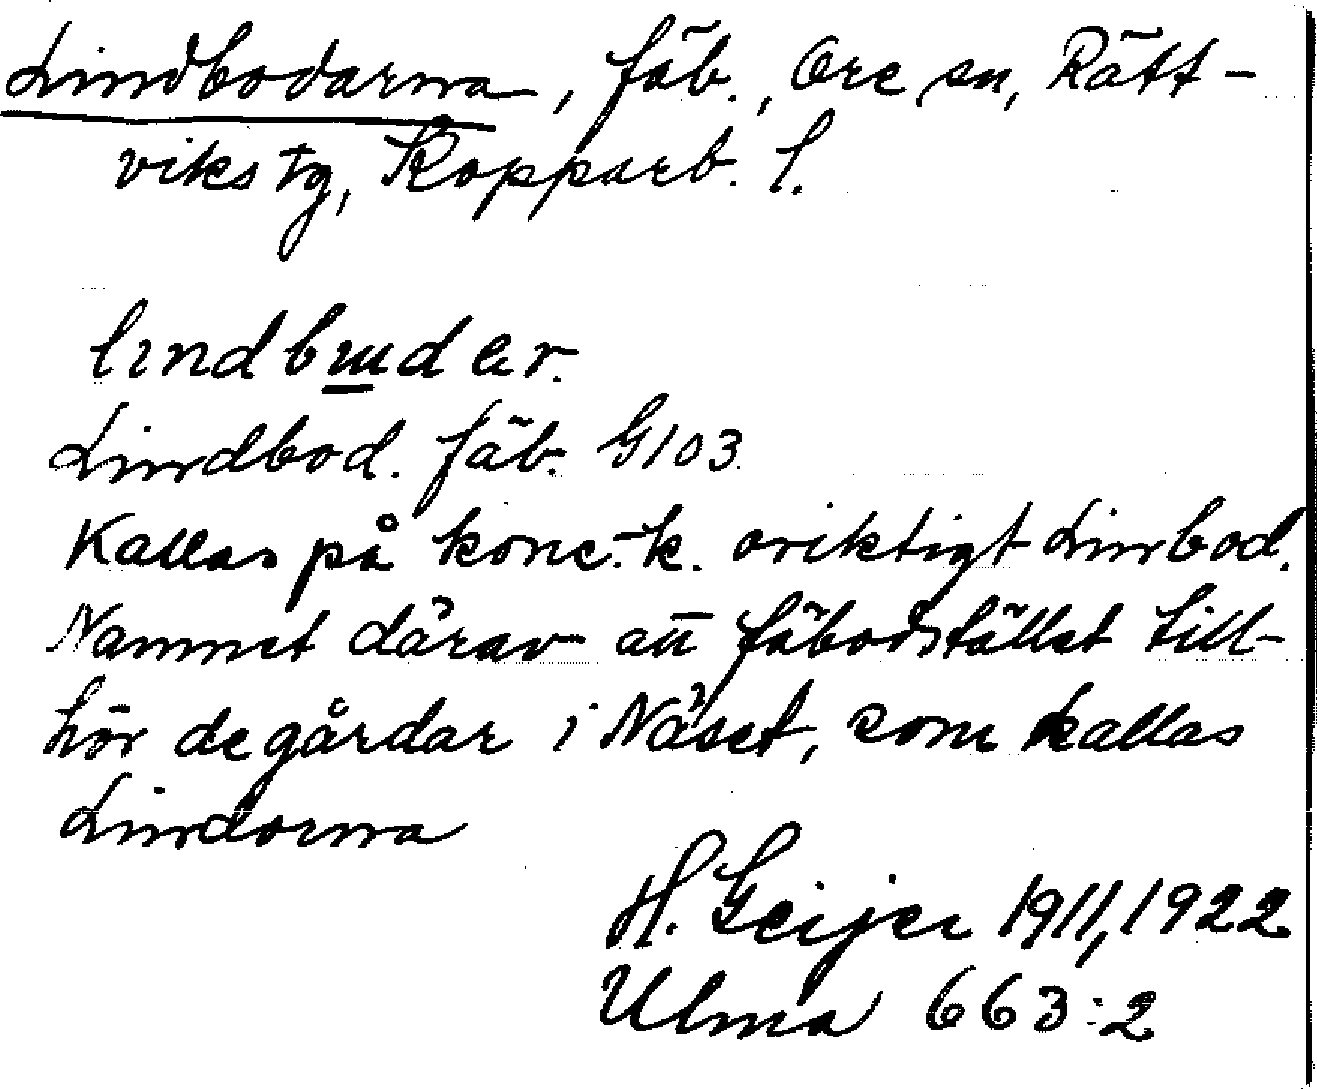 Lindbodarna, fäb., Ore sn, Rätt-
viks tg, Kopparb. l.
Lindbod. fäb. G103
Kallas på konc.-k. oriktigt Linbod.
Namnet därav att fäbodstället till-
hör de gårdar i Näset, som kallas
Lindorna
H. Geijer 1911, 1922
Ulma 663:2